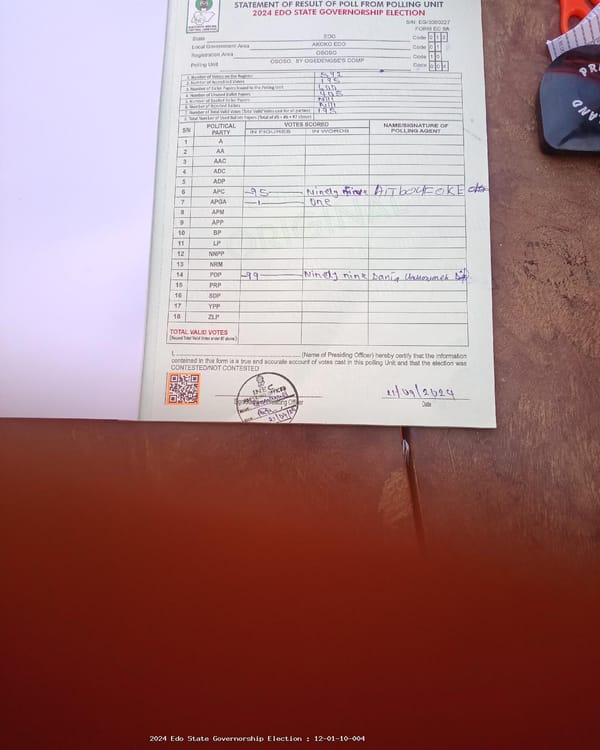 STATEMENT OF RESULT OF POLL FROM POLLING UNIT
2024 EDO STATE GOVERNORSHIP ELECTION
FORM EC 8A
State EDO Code 0 1 2
Local Government Area AKOKO EDO Code 0 1
Registration Area OSOSO Code 1 0
Polling Unit OSOSO, BY OGEDENGSE'S COMP Code 0 0 4
1. Number of Voters on the Register 592
2. Number of Accredited Voters 195
3. Number of Ballot Papers Issued to the Polling Unit
4. Number of Unused Ballot Papers
5. Number of Spoiled Ballot Papers Nill
6. Number of Rejected Ballots Nill
7. Number of Total Valid Votes (Total Valid Votes cast for all parties) 195
8. Total Number of Used Ballot Papers (Total of #5 + #6 + #7 above)
S/N POLITICAL PARTY VOTES SCORED NAME/SIGNATURE OF POLLING AGENT
IN FIGURES IN WORDS
1 A
2 AA
3 AAC
4 ADC
5 ADP
6 APC 95 Ninety
7 APGA 1 One
8 APM
9 APP
10 BP
11 LP
12 NNPP
13 NRM
14 PDP 99 Ninety nine
15 PRP
16 SDP
17 YPP
18 ZLP
TOTAL VALID VOTES
I, (Name of Presiding Officer) hereby certify that the information
contained in this form is a true and accurate account of votes cast in this polling Unit and that the election was
CONTESTED/NOT CONTESTED
INEC
Date
2024 Edo State Governorship Election : 12-01-10-004